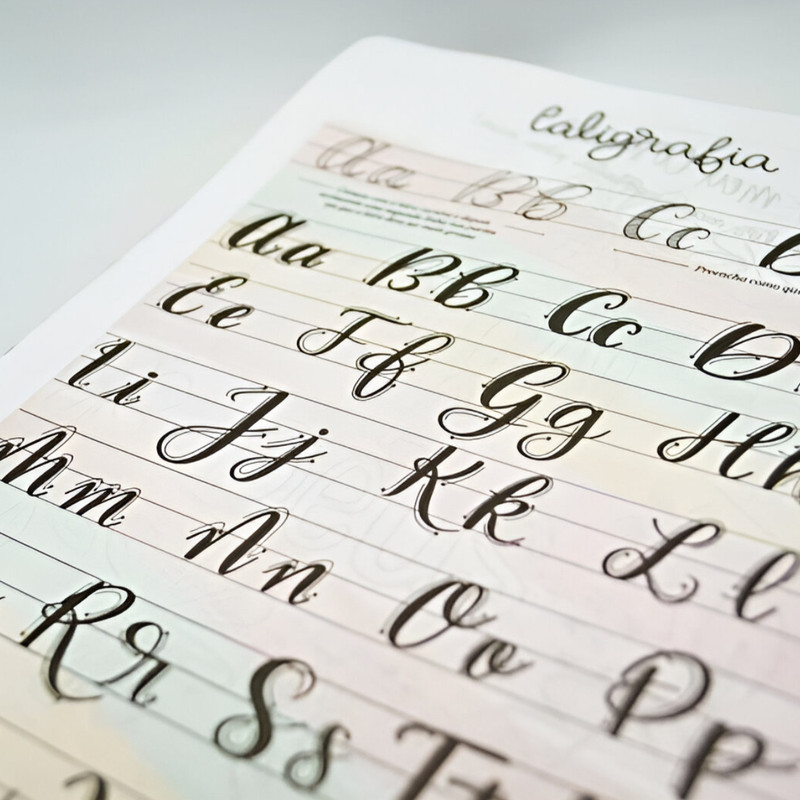 Caligrafia
Aa Bb Cc
Aa Bb Cc D
Ee Ff Gg Hh
Ii Jj Kk Ll
Mm Nn Oo Pp
Rr Ss T